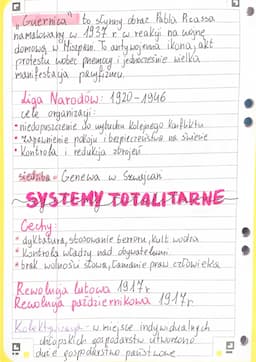 "Guernica" to słynny obraz Pabla Picassa
namalowany w 1937 r. w reakcji na wojnę
domową w Hiszpanii. To antywojenna ikona, akt
protestu wobec przemocy i jednocześnie wielka
manifestacja pacyfizmu.
Liga Narodów: 1920-1946
cele organizacji:
• niedopuszczenie do wybuchu kolejnego konfliktu
• zapewnienie pokoju i bezpieczeństwa na świecie
• kontrola i redukcja zbrojeń
siedziba - Genewa w Szwajcarii
SYSTEMY TOTALITARNE
Cechy:
• dyktatura, stosowanie terroru, kult wodza
• kontrola władzy nad obywatelami
• brak wolności słowa, łamanie praw człowieka
Rewolucja lutowa 1917r
Rewolucja październikowa 1917r
Kolektywizacja - w miejsce indywidualnych
chłopskich gospodarstw utworzono
duże gospodarstwa państwowe